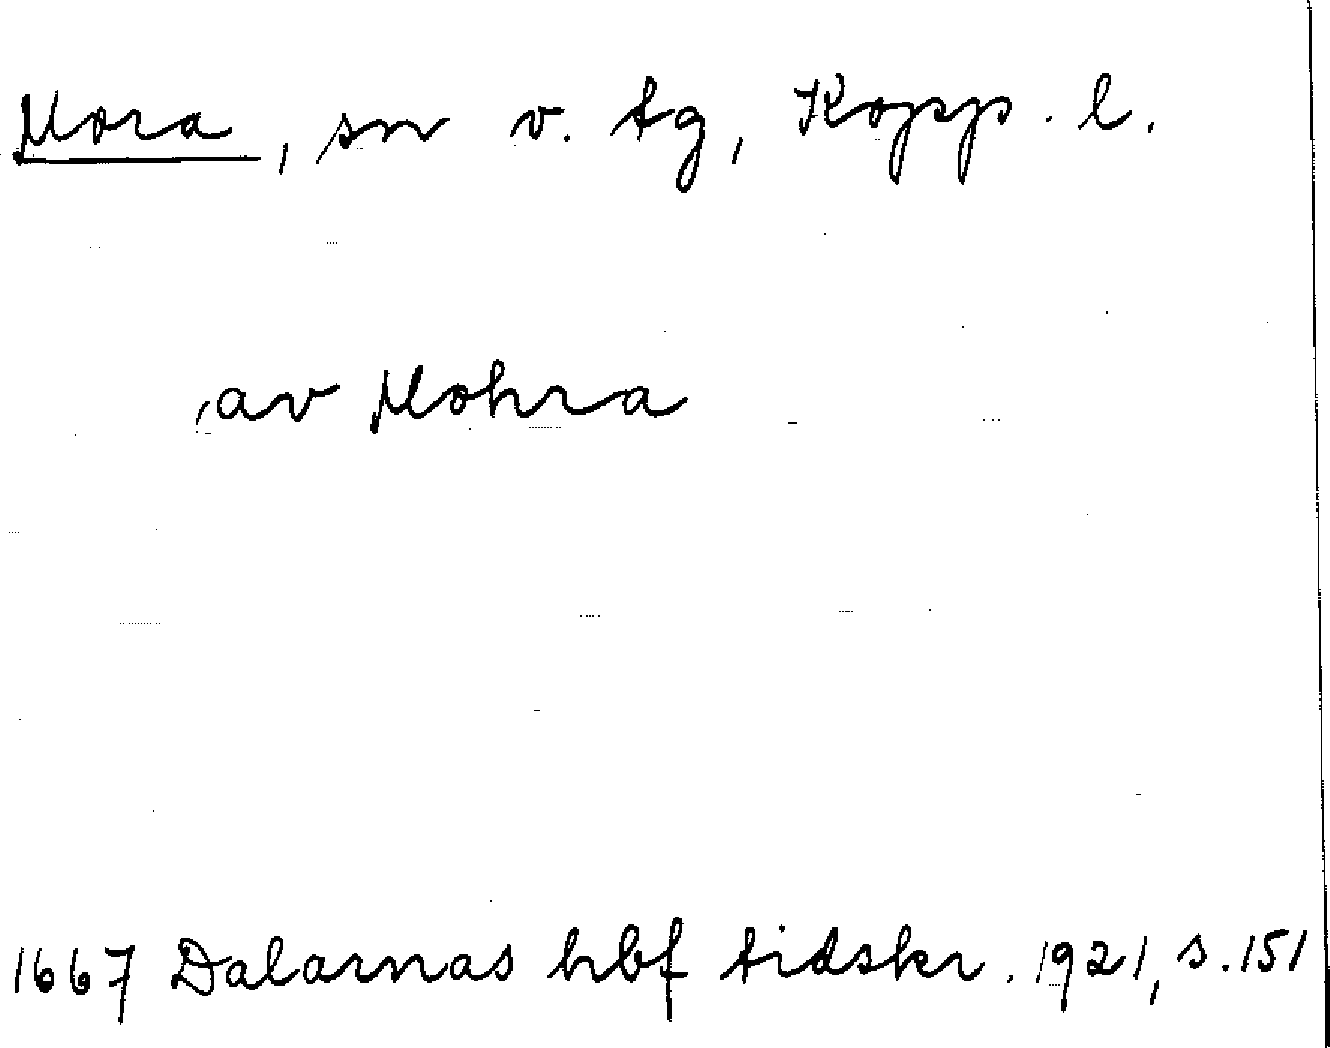 Mora, sn v. tg, Kopp. l.
, av Mohra
1667 Dalarnas hbf tidskr. 1921, s. 151